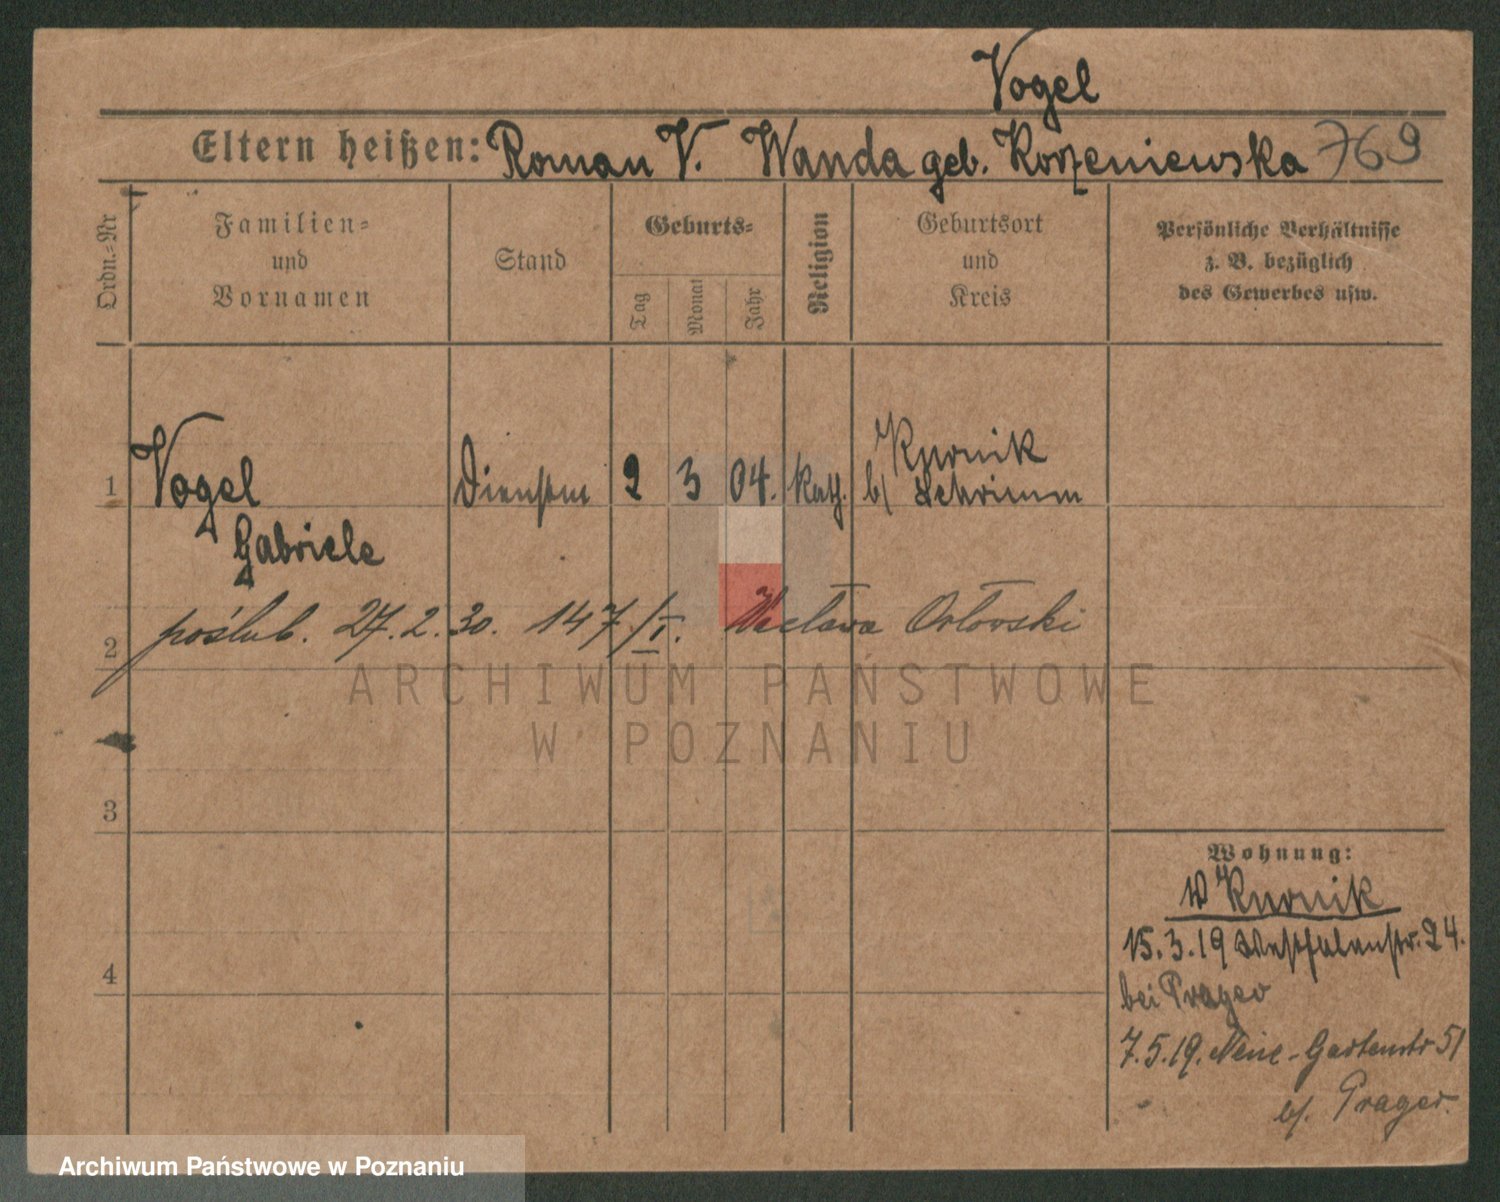 Vogel
Eltern heißen: Roman V. Wanda geb. Korzeniewska 769
Ordn.=Nr
Familien=
und
Vornamen
Stand
Geburts=
Tag
Monat
Jahr
Religion
Geburtsort
und
Kreis
Persönliche Verhältnisse
z. B. bezüglich
des Gewerbes usw.
1 Vogel Dienstm 2 3 04. Kath. Kurnik
b/ Schrimm
Gabriele
2 poślub. 27.2.30. 147/I. Wacława Orłowski
ARCHIWUM PAŃSTWOWE
W POZNANIU
3
4
Wohnung:
Kurnik
15.3.19 Westfalenstr. 24.
bei Prager
7.5.19. Neue-Gartenstr 51
b/. Prager.
Archiwum Państwowe w Poznaniu